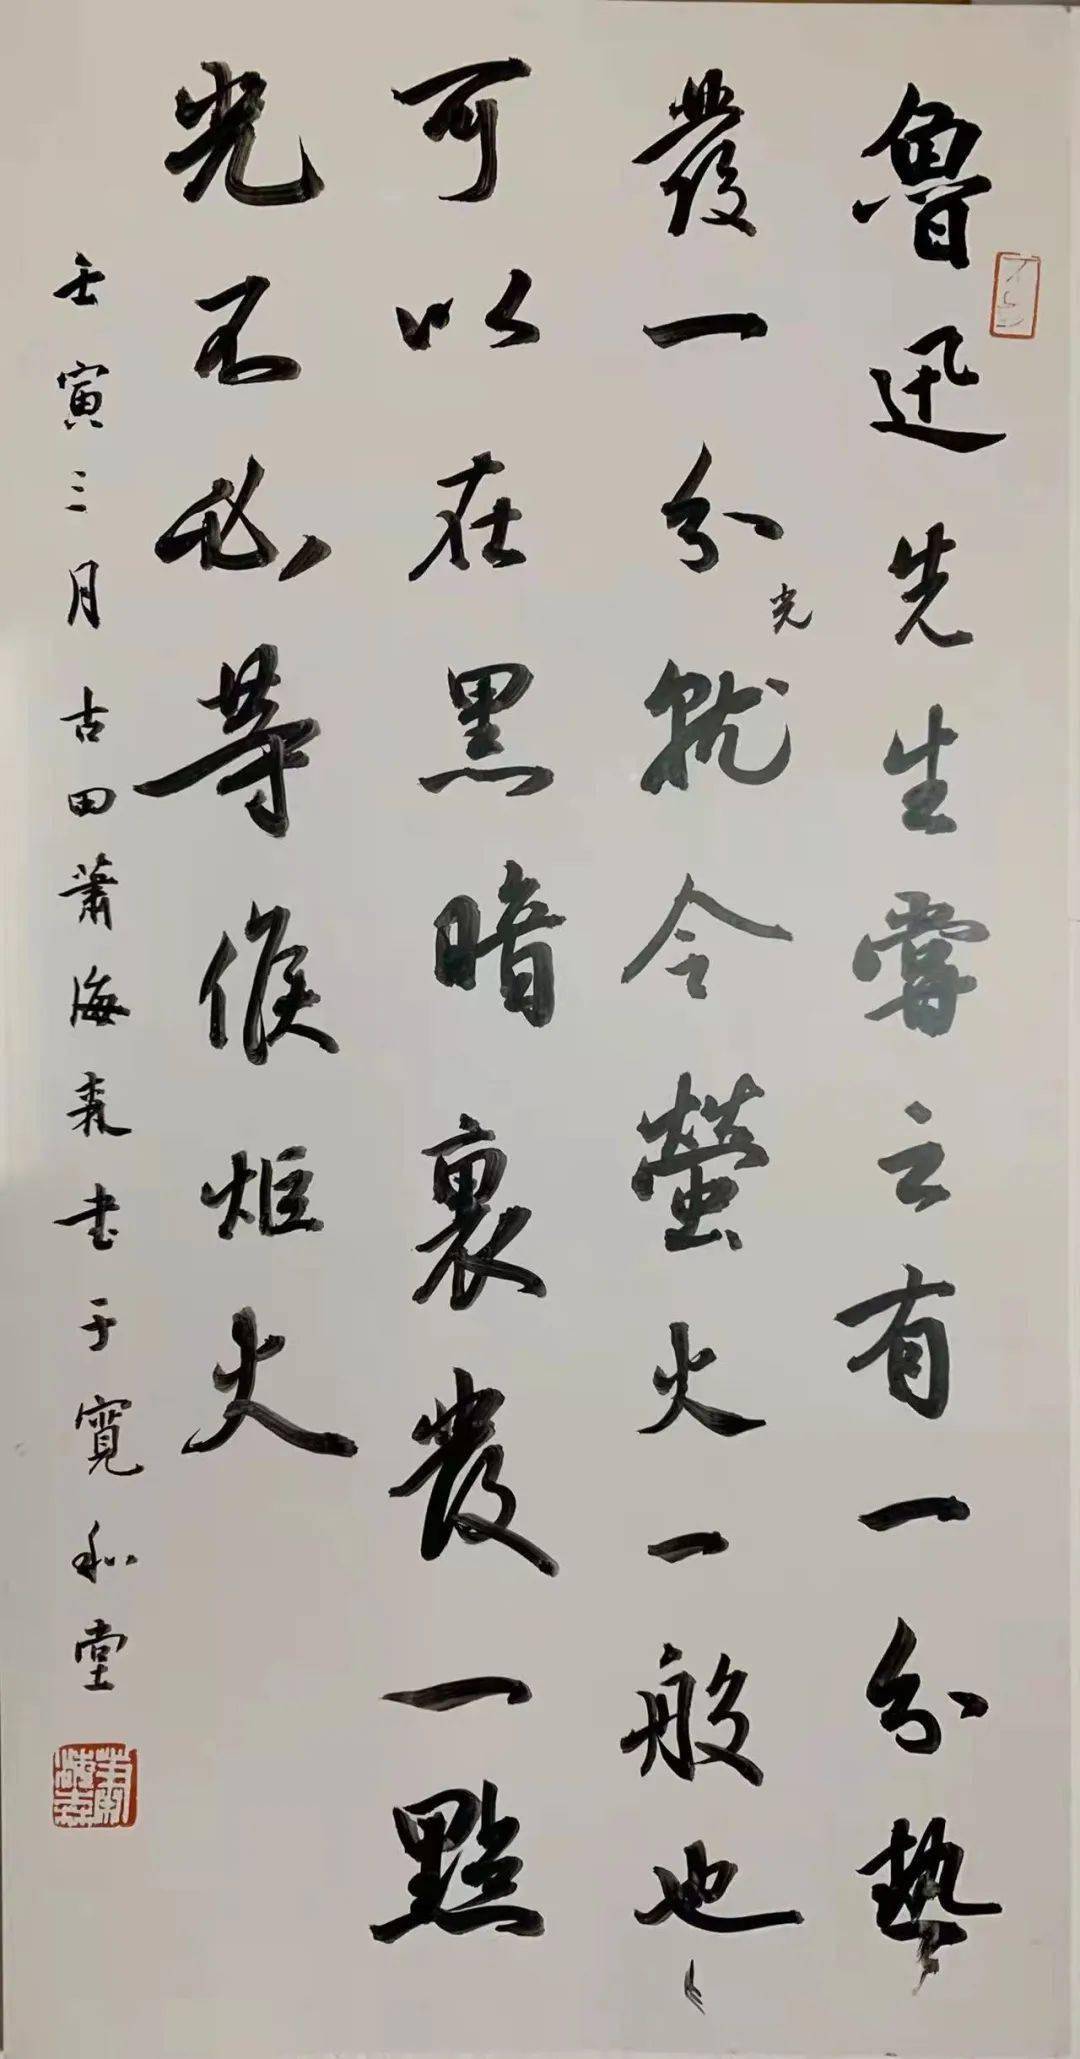 魯迅先生嘗云有一分熱
發一分光就令螢火一般也
可以在黑暗裏發一點
光不必等候炬火
壬寅三月古田蕭海森書于寬和堂